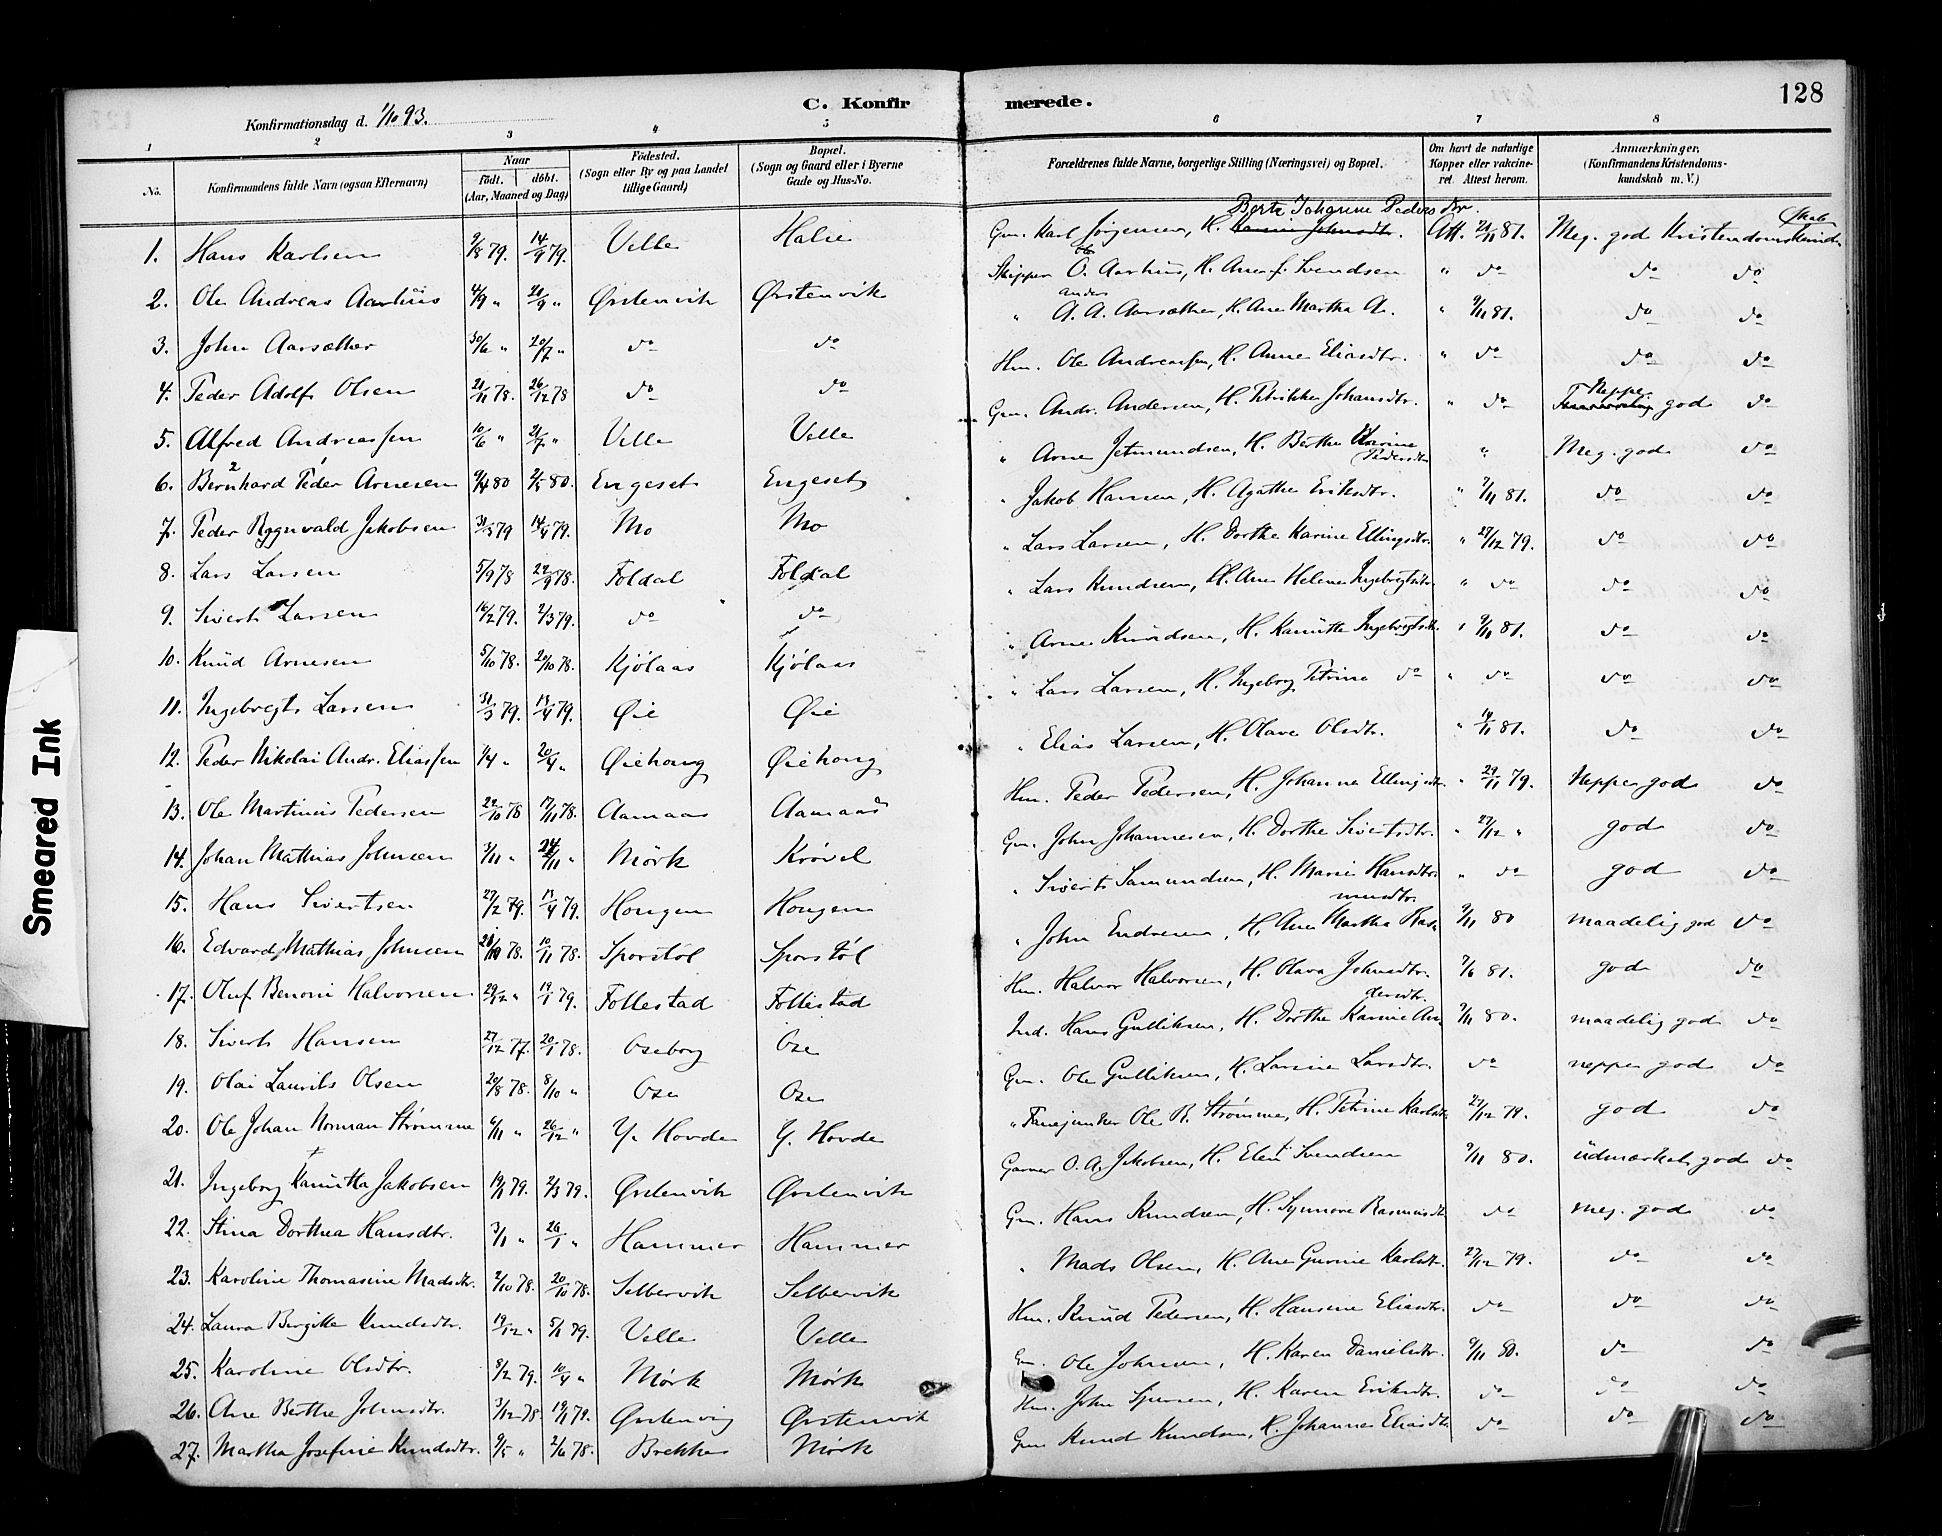 128
C. Konfir merede.
Konfirmationsdag d. 1/10 93.
1 2 3 4 5 6 7 8
No. Konfirmandens fulde Navn (ogsaa Efternavn) Naar Født. døbt. (Aar, Maaned og Dag) Fødested. (Sogn eller By og paa Landet tillige Gaard) Bopæl. (Sogn og Gaard eller i Byerne Gade og Hus-No. Forældrenes fulde Navne, borgerlige Stilling (Næringsvei) og Bopæl. Om havt de naturlige Kopper eller vakcineret. Attest herom. Anmærkninger, (Konfirmandens Kristendomskundskab m. V.)
Berte Johanne Pedersdtr.
1. Hans Karlsen 9/8 79. 14/9 79. Velle Halse Gm. Karl Jørgensen, H. Karen Johnsdtr. Att. 21/11 81. Meg. god Kristendomskundskab
2. Ole Andreas Aarhus 4/9 " 21/9 " Ørstenvik Ørstenvik Skipper O. Aarhus, H. Ane f. Svendsen " do do do
3. John Aarsæther 30/6 " 20/7 " do do " A. A. Aarsæther, H. Ane Martha A. " 9/11 81. do do
4. Peder Adolf Olsen 21/11 78. 26/12 78 do do Hm. Ole Andreassen, H. Anne Eliasdtr. " do do do
5. Alfred Andreassen 10/6 " 21/7 " Velle Velle Gm. Andr. Andersen, H. Petrikke Johansdtr. " do Neppe god do
6. Bernhard Peder Arnesen 9/4 80 2/5 80. Engeset Engeset " Arne Jetmundsen, H. Berthe Karine Pedersdtr " Meg. god do
7. Peder Rognvald Jakobsen 31/3 79 14/4 79. Mo Mo " Jakob Hansen, H. Agathe Eriksdtr. " 9/11 81. do do
8. Lars Larsen 5/9 78 22/9 78. Foldal Foldal " Lars Larsen, H. Dorthe Karine Ellingsdtr. " 27/12 79. do do
9. Sivert Larsen 16/2 79. 2/3 79. do do " Lars Knudsen, H. Ane Helene Ingebrigtsdtr " do do do
10. Knud Arnesen 5/10 78. 20/10 78. Kjølaas Kjølaas " Arne Knudsen, H. Kanutte Ingebrigtsdtr. " 9/11 81. do do
11. Ingebregt Larsen 31/3 79. 13/4 79. Øie Øie " Lars Larsen, H. Ingeborg Petrine do " do do do
12. Peder Nikolai Andr. Eliassen 1/4 " 20/4 " Øiehoug Øiehoug " Elias Larsen, H. Olave Olsdtr. " 14/11 81. do do
13. Ole Martinus Pedersen 22/10 78 17/11 78. Aamaas Aamaas Hm. Peder Pedersen, H. Johanne Ellingsdtr " 29/11 79. Neppe god do
14. Johan Mathias Johnsen 3/11 " 24/11 " Mørk Krøvel Gm. John Johannesen, H. Dorthe Sivertsdtr. " 27/12 " god do
15. Hans Sivertsen 27/2 79. 13/4 79. Hougen Hougen " Sivert Samundsen, H. Marie Hansdtr. " do god do
16. Edvard Mathias Johnsen 10/11 78. Sporstøl Sporstøl " John Endresen, H. Ane Martha Rasmusdtr. 9/11 80 maadelig god do
17. Oluf Benoni Halvorsen 29/12 " 19/1 79. Follestad Follestad Hm. Halvor Halvorsen, H. Olava Johnsdtr. 7/6 81. god do
18. Sivert Hansen 27/12 77. 20/1 78. Oseborg Ose Ind. Hans Gulliksen, H. Dorthe Karine Andersdtr. 9/11 80. maadelig god do
19. Olai Laurits Olsen 20/8 78. 8/10 " Ose Ose Gm. Ole Gulliksen, H. Larsine Larsdtr. do neppe god do
20. Ole Johan Norman Strømme 6/11 " 26/12 " Y. Hovde Y. Hovde " Fanejunker Ole R. Strømme, H. Petrine Karlsdtr 27/12 79. god do
21. Ingeborg Kanutta Jakobsen 19/1 79. 2/3 79. Ørstenvik Ørstenvik Garver O. A. Jakobsen, H. Elen Svendsen 9/11 80. udmærket god do
22. Stina Dorthea Hansdtr. 3/1 " 26/1 " Hammer Hammer Gm. Hans Knudsen, H. Synnøve Rasmusdtr do meg. god do
23. Karoline Thomasine Madsdtr. 2/10 78. 20/10 78. Selbervik Selbervik " Mads Olsen, H. Ane Gurine Karlsdtr. 27/12 79. do do
24. Laura Birgitte Knudsdtr. 19/12 " 5/1 79. Velle Velle Hm. Knud Pedersen, H. Hansine Eliasdtr. do do do
25. Karoline Olsdtr. 8/2 79. 10/4 " Mørk Mørk Gm. Ole Johnsen, H. Karen Danielsdtr. 9/11 80. do do
26. Ane Berthe Johnsdtr. 3/12 78. 19/1 79. Ørstenvig Ørstenvik Hm. John Sjursen, H. Karen Eriksdtr. do do do
27. Martha Josefine Knudsdtr. 9/5 " 2/6 78. Brekke Mørk Gm Knud Knudsen, H. Johanne Eliasdtr do do do
Smeared Ink